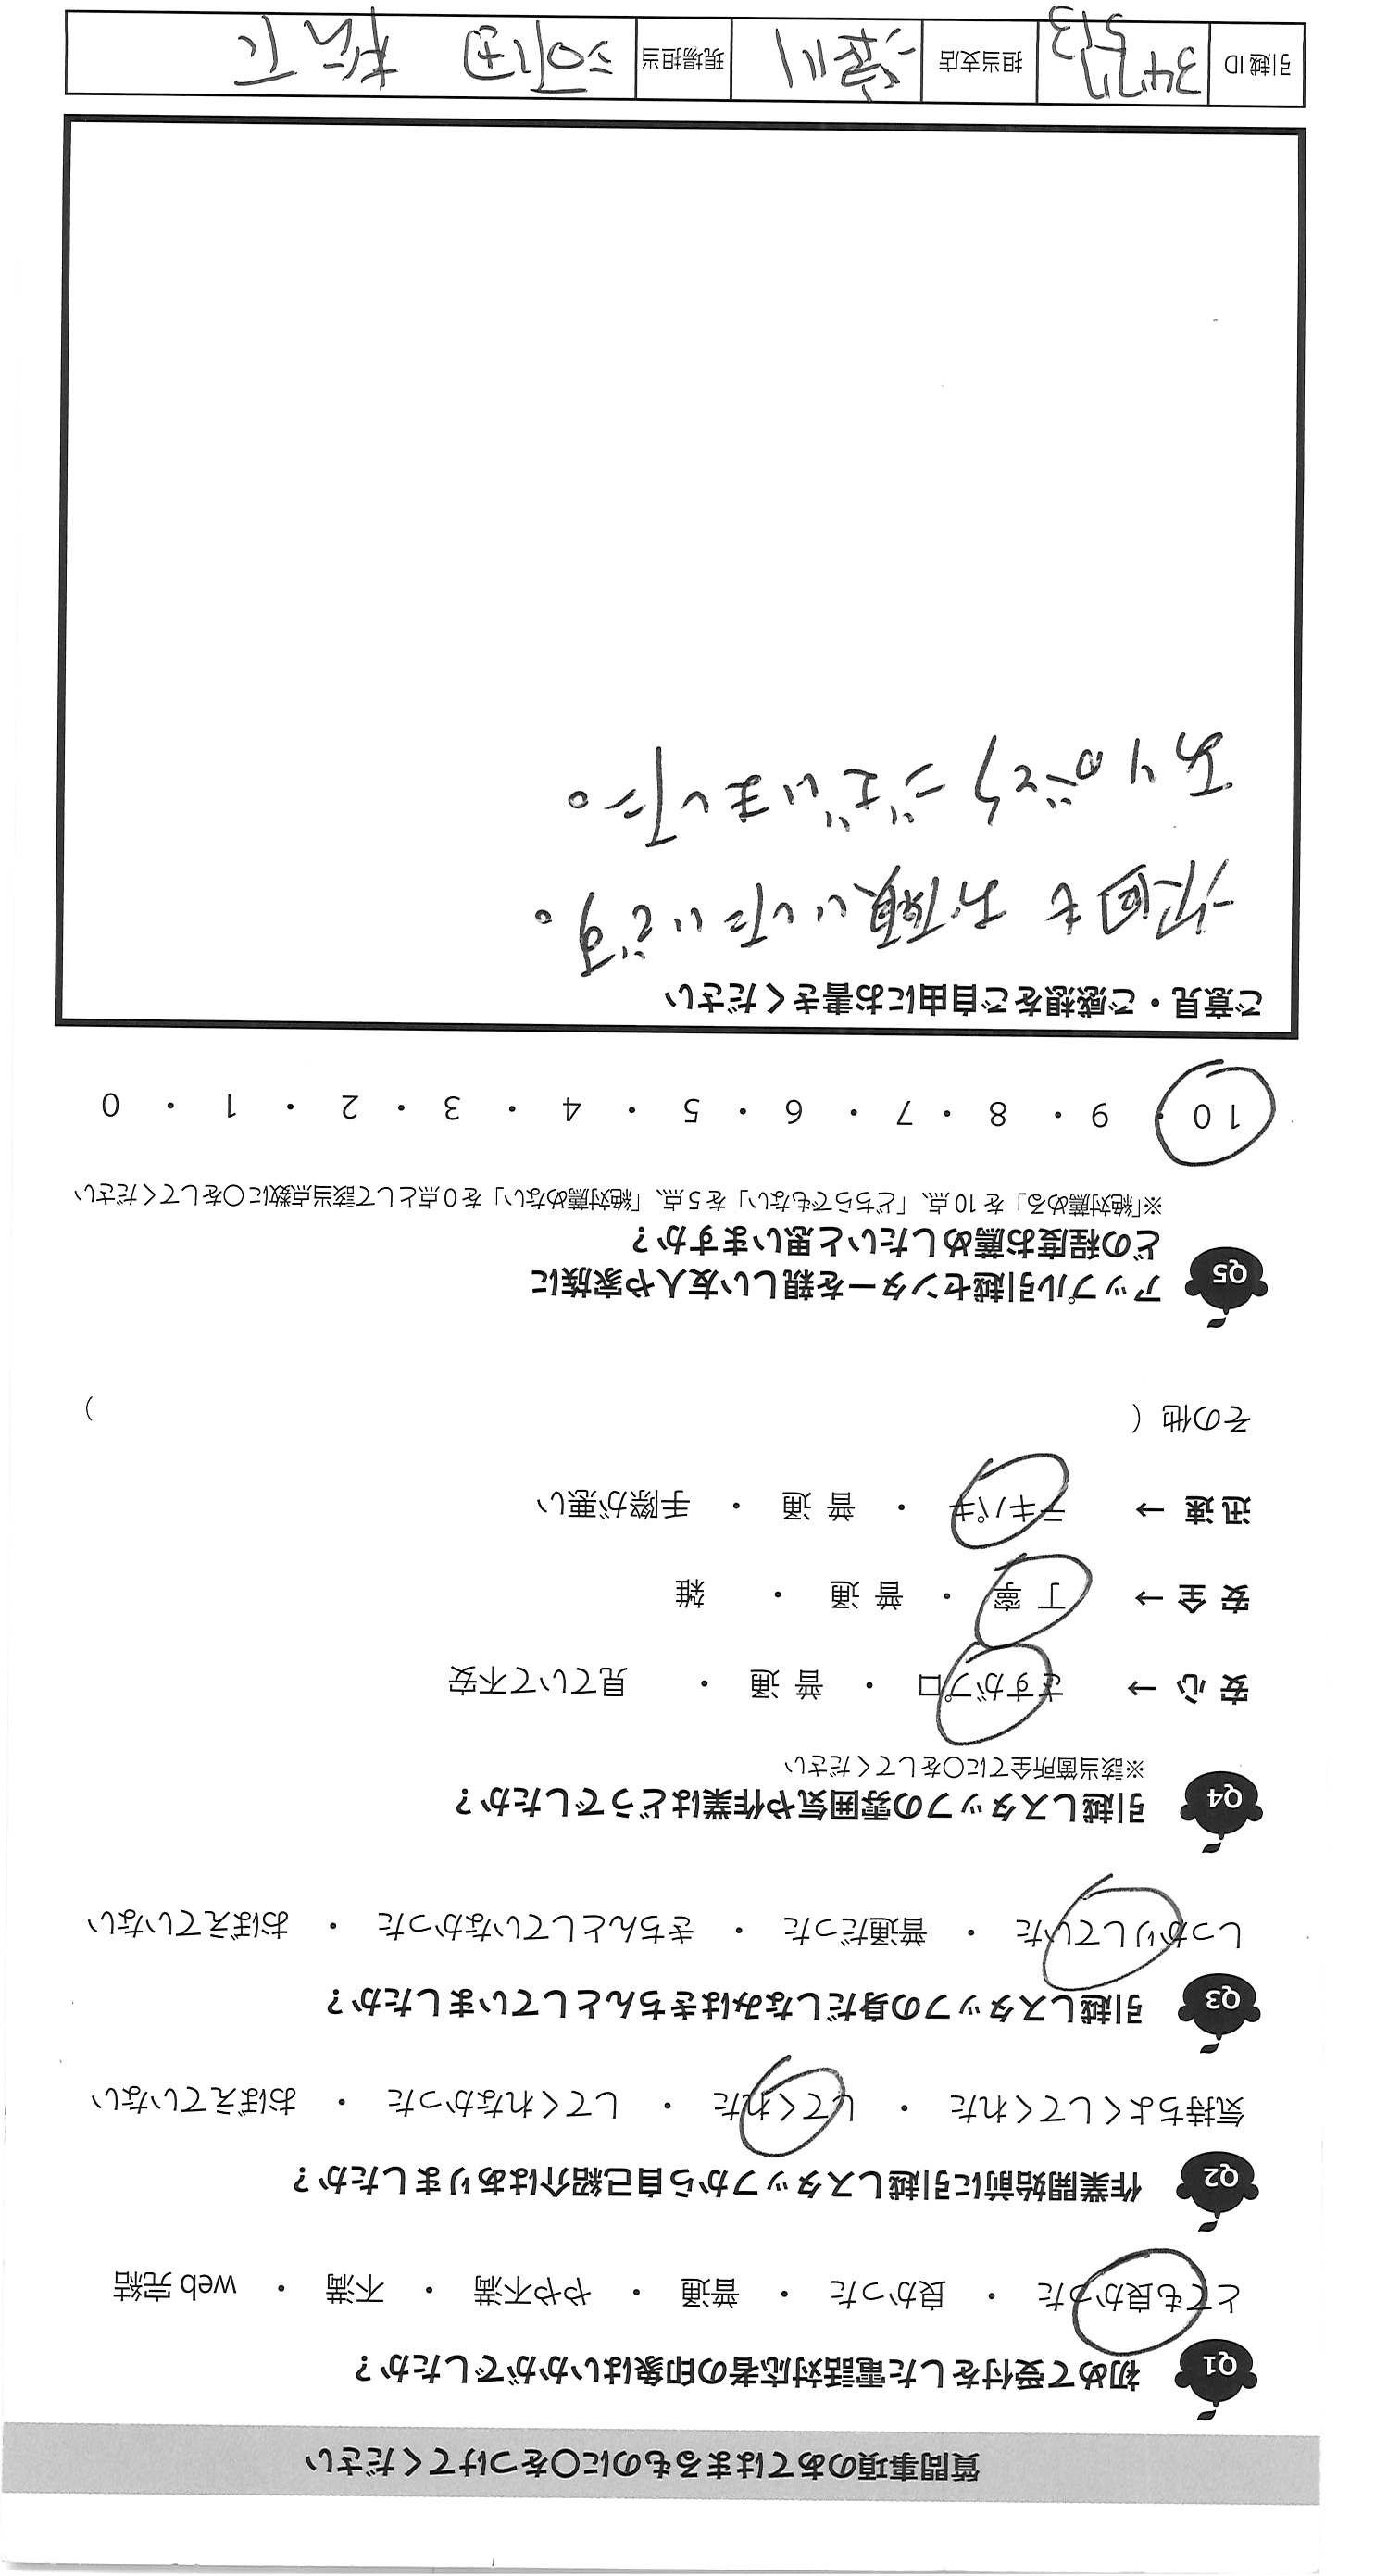 質問事項のあてはまるものに○をつけてください
Q1 初めて受付をした電話対応者の印象はいかがでしたか？
とても良かった ・ 良かった ・ 普通 ・ やや不満 ・ 不満 ・ web 完結
Q2 作業開始前に引越しスタッフから自己紹介はありましたか？
気持ちよくしてくれた ・ してくれた ・ してくれなかった ・ おぼえていない
Q3 引越しスタッフの身だしなみはきちんとしていましたか？
しっかりしていた ・ 普通だった ・ きちんとしていなかった ・ おぼえていない
Q4 引越しスタッフの雰囲気や作業はどうでしたか？
※該当箇所全てに○をしてください
安心 → さすがプロ ・ 普通 ・ 見ていて不安
安全 → 丁寧 ・ 普通 ・ 雑
迅速 → テキパキ ・ 普通 ・ 手際が悪い
その他（ ）
Q5 アップル引越センターを親しい友人や家族に
どの程度お薦めしたいと思いますか？
※「絶対薦める」を 10 点、「どちらでもない」を 5 点、「絶対薦めない」を 0 点として該当点数に○をしてください
10 ・ 9 ・ 8 ・ 7 ・ 6 ・ 5 ・ 4 ・ 3 ・ 2 ・ 1 ・ 0
ご意見・ご感想をご自由にお書きください
次回もお願いいたいです。
ありがとうございました。
引越 ID 3477 513 担当支店 現場担当